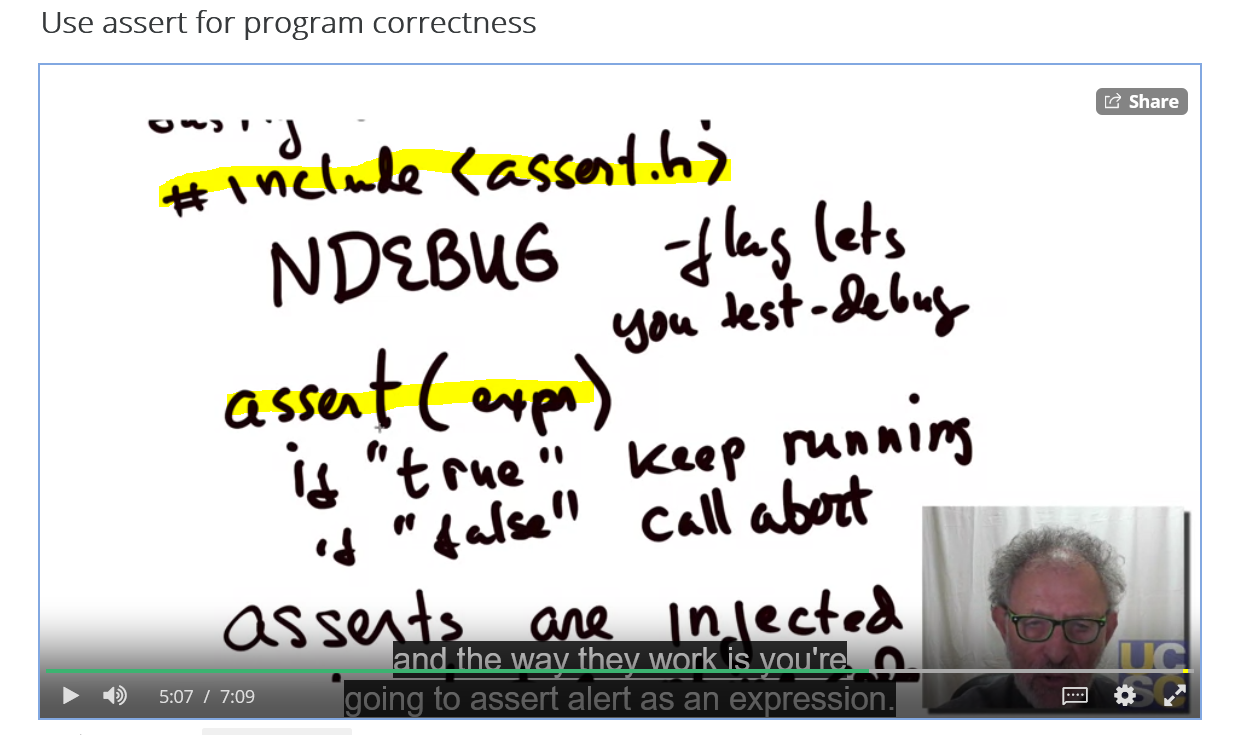 Use assert for program correctness
Share
#include <assert.h>
NDEBUG -flag lets
you test-debug
assert(expr)
if "true" keep running
if "false" call abort
asserts are injected
and the way they work is you're
going to assert alert as an expression.
5:07 / 7:09
UC
SC